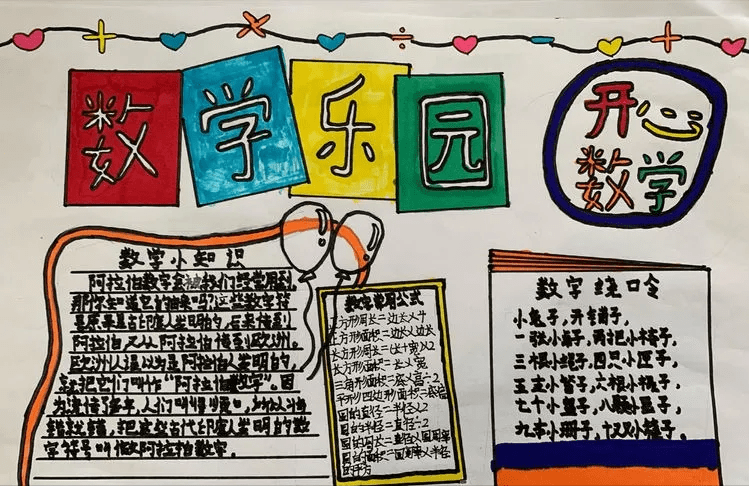 数学乐园
开心
数学
数学小知识
阿拉伯数字会被我们经常用到
那你知道它的由来吗?这些数字符
号原来是古印度人发明的,后来传到
阿拉伯又从阿拉伯传到欧洲。
欧洲人误以为是阿拉伯人发明的
就把它们叫作“阿拉伯数字”。因
为流传了多年,人们叫得
错就错,把这些古代印度人发明的数
字符号叫做阿拉伯数字。
数学常用公式
正方形周长=边长×4
正方形面积=边长×边长
长方形周长=(长+宽)×2
长方形面积=长×宽
三角形面积=底×高÷2
平行四边形面积=底×高
圆的直径=半径×2
圆的半径=直径÷2
圆的周长=直径×圆周率
圆的面积=圆周率×半径
的平方
数字绕口令
小兔子,开铺子,
一张小桌子,两把小椅子,
三根小绳子,四只小匣子,
五支小管子,六根小棍子,
七个小盒子,八颗小豆子,
九本小册子,十双小筷子。